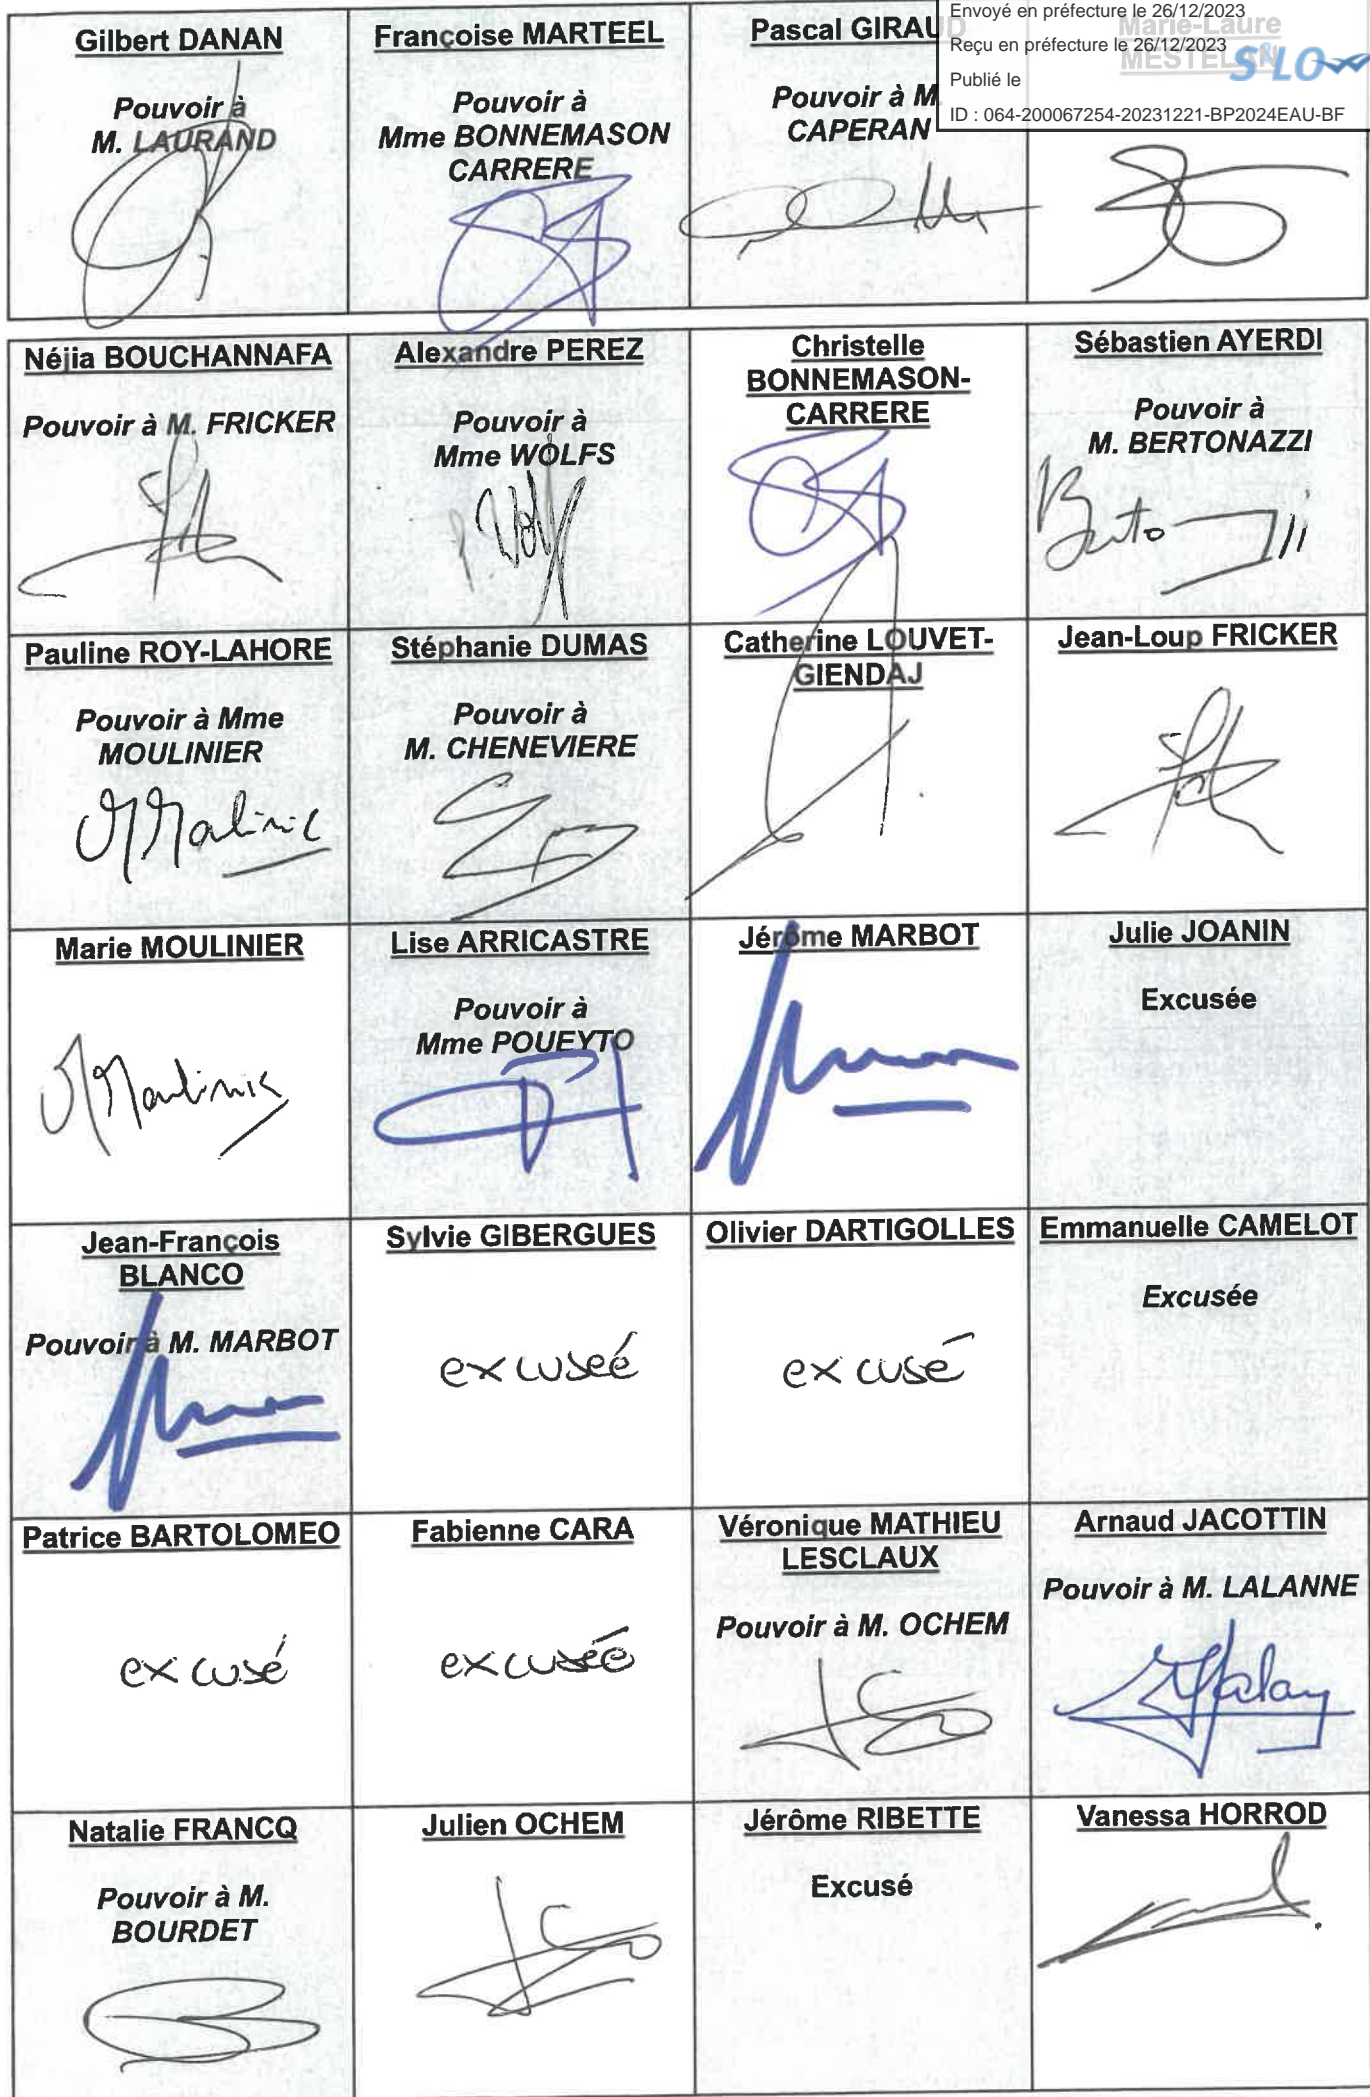 Envoyé en préfecture le 26/12/2023
Reçu en préfecture le 26/12/2023
Publié le
ID : 064-200067254-20231221-BP2024EAU-BF
S²LO
Gilbert DANAN
Pouvoir à
M. LAURAND
Françoise MARTEEL
Pouvoir à
Mme BONNEMASON
CARRERE
Pascal GIRAUD
Pouvoir à M.
CAPERAN
Marie-Laure
MESTELAN
Néjia BOUCHANNAFA
Pouvoir à M. FRICKER
Alexandre PEREZ
Pouvoir à
Mme WOLFS
Christelle
BONNEMASON-
CARRERE
Sébastien AYERDI
Pouvoir à
M. BERTONAZZI
Pauline ROY-LAHORE
Pouvoir à Mme
MOULINIER
Stéphanie DUMAS
Pouvoir à
M. CHENEVIERE
Catherine LOUVET-
GIENDAJ
Jean-Loup FRICKER
Marie MOULINIER
Lise ARRICASTRE
Pouvoir à
Mme POUEYTO
Jérôme MARBOT
Julie JOANIN
Excusée
Jean-François
BLANCO
Pouvoir à M. MARBOT
Sylvie GIBERGUES
excuseé
Olivier DARTIGOLLES
excusé
Emmanuelle CAMELOT
Excusée
Patrice BARTOLOMEO
excusé
Fabienne CARA
excusée
Véronique MATHIEU
LESCLAUX
Pouvoir à M. OCHEM
Arnaud JACOTTIN
Pouvoir à M. LALANNE
Natalie FRANCQ
Pouvoir à M.
BOURDET
Julien OCHEM
Jérôme RIBETTE
Excusé
Vanessa HORROD